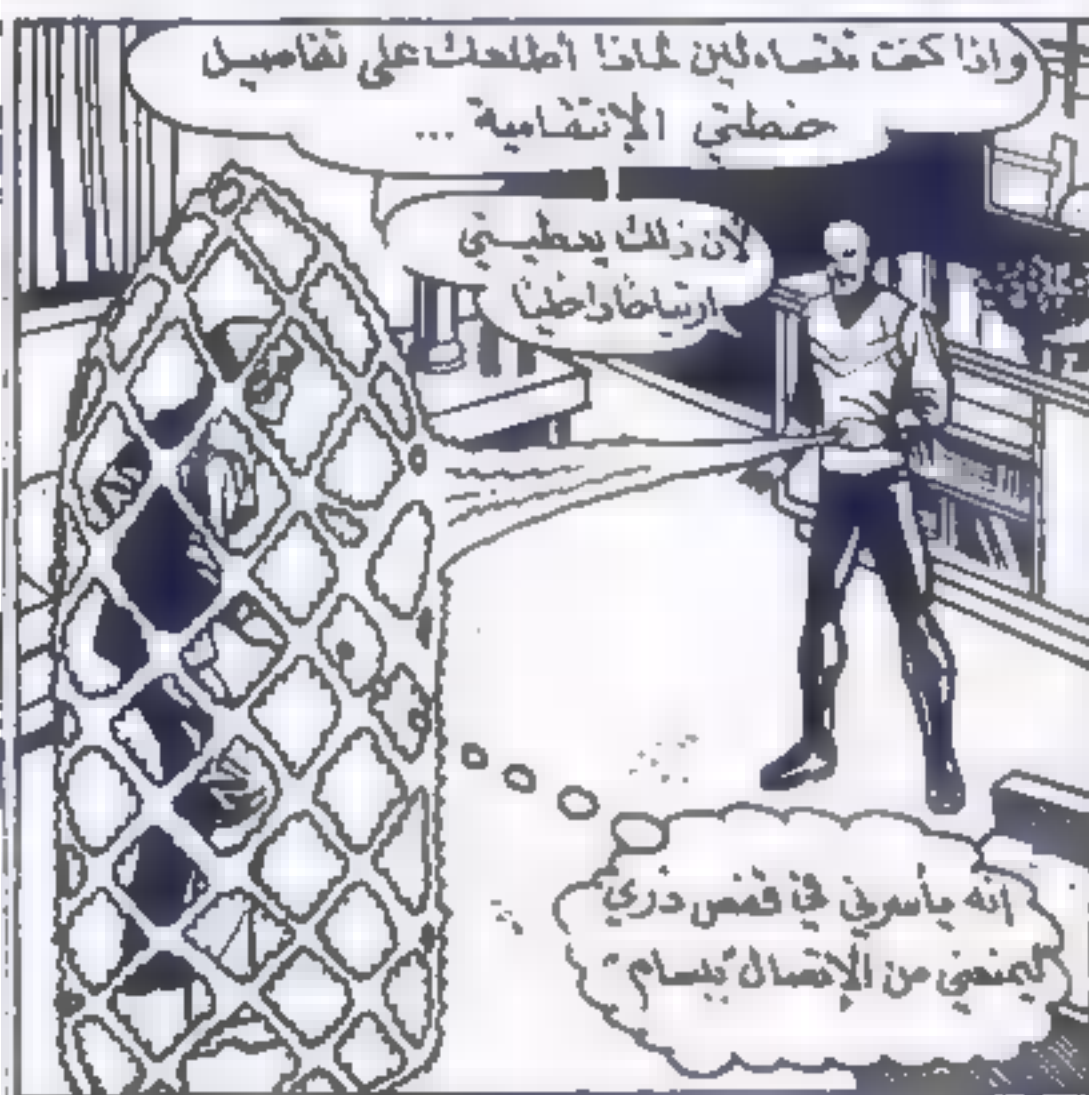 واذا كنت تتساءلين لماذا أطلعتك على تفاصيل
خطتي الإنتقامية ...
لأن ذلك يعطيني
ارتياحًا داخليًا
إنه يأسرني في قفص ذري
ليمنعني من الإتصال "ببسام"